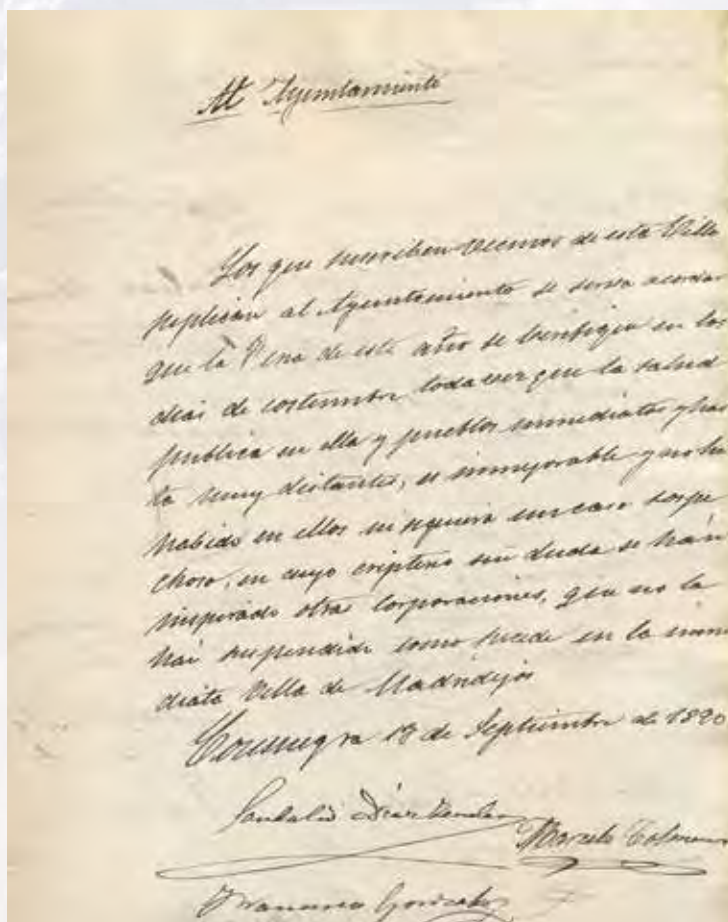 Al Ayuntamiento
Los que suscriben vecinos de esta Villa
suplican al Ayuntamiento se sirva acordar
que la Feria de este año se verifique en los
dias de costumbre toda vez que la salud
publica en ella y pueblos inmediatos y has
ta muy distantes, es inmejorable y no ha
habido en ellos ni siquiera un caso sospe
choso, en cuyo criterio sin duda se han
inspirado otras corporaciones, que no la
han suspendido como sucede en la inme
diata Villa de Madridejos
Consuegra 13 de Septiembre de 1890
Sandalio Diaz
Marcelo
Francisco Gonzalez